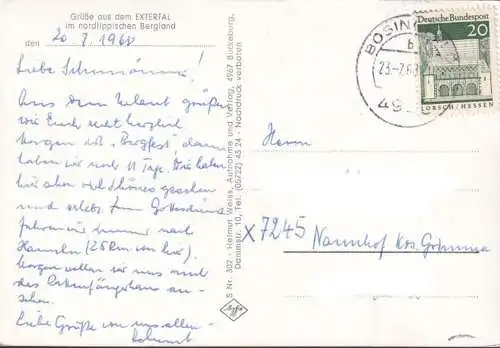 Grüße aus dem EXTERTAL
im nordlippischen Bergland
den 20 7. 1968
Liebe
Aus dem Urlaub grüßen
wir Euch recht herzlich
morgen ist „Bergfest", dann
haben wir noch 11 Tage. Die haben
hier schon viel Schönes gesehen
und erlebt. Zum Gottesdienst
fahren wir immer nach
Hameln (25 km von hier).
Morgen wollen wir uns noch
das Rattenfängerhaus an-
sehen.
Liebe Grüße von uns allen
S Nr. 302 - Helmut Weiss, Aufnahme und Verlag, 4967 Bückeburg,
Dammstr. 10, Tel. (05722) 43 24 - Nachdruck verboten
Agfa
BÖSING
b
23.-7.68
49
Deutsche Bundespost
20
LORSCH/HESSEN
Herrn
x 7245 Naunhof Krs. Grimma